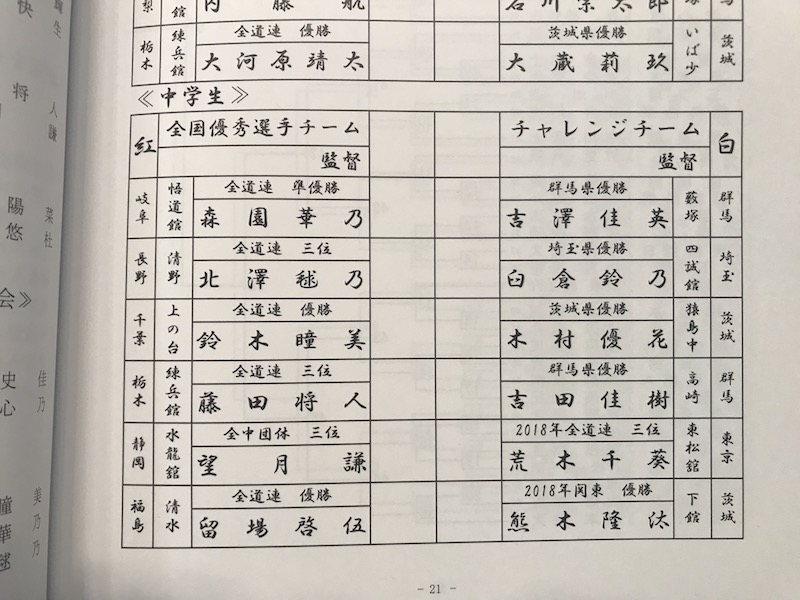 内藤航
石川奈太郎
栃木 練兵館 全道連 優勝 茨城県優勝 いば少 茨城
大河原靖太 大蔵莉玖
≪中学生≫
紅 全国優秀選手チーム チャレンジチーム 白
監督 監督
岐阜 悟道館 全道連 準優勝 群馬県優勝 藪塚 群馬
森園華乃 吉澤佳英
長野 清野 全道連 三位 埼玉県優勝 四誠館 埼玉
北澤毬乃 臼倉鈴乃
千葉 上の台 全道連 優勝 茨城県優勝 猿島中 茨城
鈴木瞳美 木村優花
栃木 練兵館 全道連 三位 群馬県優勝 高崎 群馬
藤田将人 吉田佳樹
静岡 水龍舘 全中団体 三位 2018年全道連 三位 東松館 東京
望月謙 荒木千葵
福島 清水 全道連 優勝 2018年関東 優勝 下館 茨城
留場啓伍 熊木隆汰
- 21 -